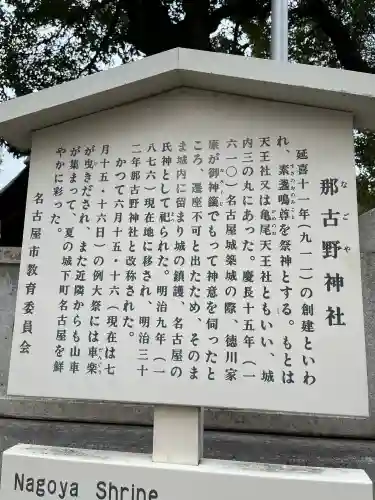 那古野神社
なごや
延喜十一年(九一一)の創建といわ
れ、素盞嗚尊を祭神とする。もとは
すさのおのみこと
天王社又は亀尾天王社ともいい、城
かめのお
内三の丸にあった。慶長十五年(一
六一〇)名古屋城築城の際、徳川家
康が御神籤でもって神意を伺ったと
ころ、遷座不可と出たため、そのま
ま城内に留まり城の鎮護、名古屋の
氏神として祀られた。明治九年(一
八七六)現在地に移され、明治三十
二年那古野神社と改称された。
かつて六月十五・十六(現在は七
月十五・十六日)の例大祭には車楽
だんじり
が曳きだされ、また近隣からも山車
が集まって、夏の城下町名古屋を鮮
やかに彩った。
名古屋市教育委員会
Nagoya Shrine